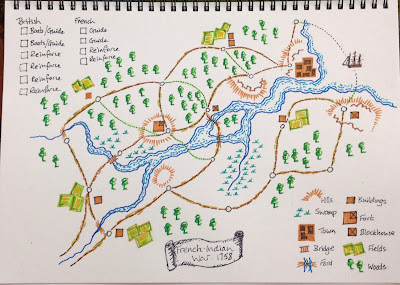 British
Boats/Guide
Boats/Guide
Reinforce
Reinforce
Reinforce
Reinforce
French
Guide
Guide
Reinforce
Reinforce
Hills
Swamp
Town
Bridge
Ford
Buildings
Fort
Blockhouse
Fields
Woods
French-Indian
War 1758